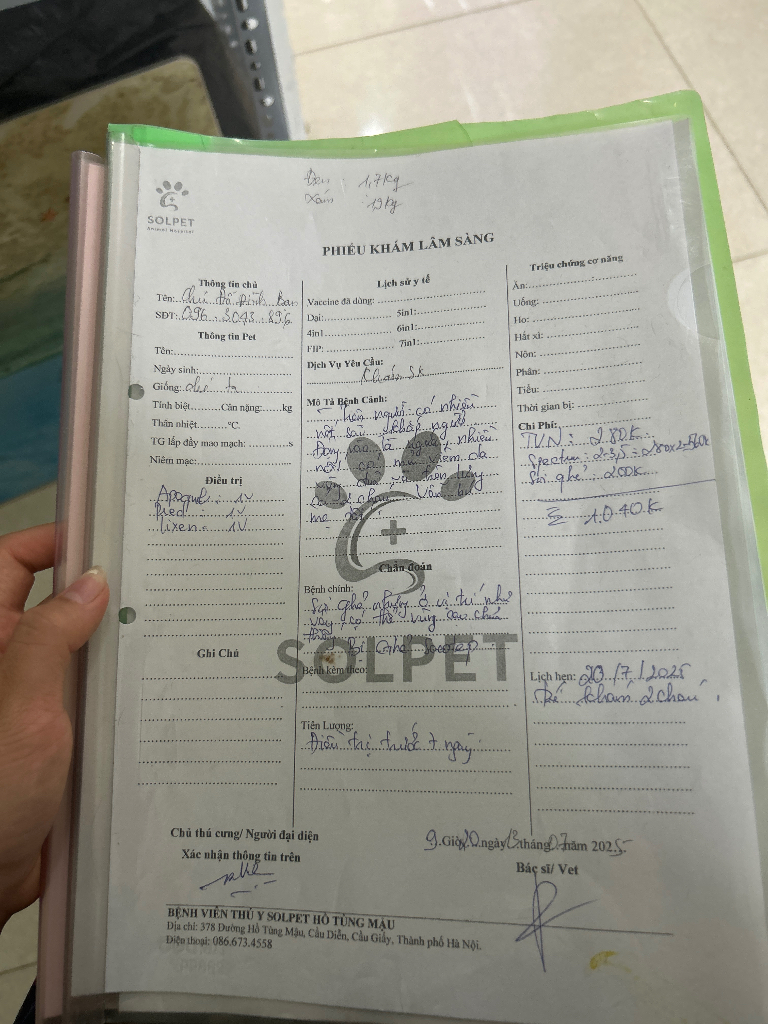 Đen : 1,7kg
Xám : 1,9kg
SOLPET
Animal Hospital
PHIẾU KHÁM LÂM SÀNG
Thông tin chủ
Tên: Chú Đỗ Đình Ban
SĐT: 096.3043.896
Thông tin Pet
Tên:
Ngày sinh:
Giống: chó ta
Tính biệt Cân nặng: kg
Thân nhiệt °C.
TG lấp đầy mao mạch: s
Niêm mạc:
Điều trị
Apoquel : 1V
Pred : 1V
Tixen : 1V
Ghi Chú
Lịch sử y tế
Vaccine đã dùng:
Dại: 5in1:
4in1 6in1:
FIP: 7in1:
Dịch Vụ Yêu Cầu:
Khám SK
Mô Tả Bệnh Cảnh:
- trên người có nhiều
nốt khắp người
nhiều
nốt viêm da
mẹ
Chẩn đoán
Bệnh chính:
ghẻ ở vị trí như
vậy có thể vùng cao chưa
Bị Ghẻ
SOLPET
Bệnh kèm theo:
Tiên Lượng:
Điều trị trước 7 ngày
Triệu chứng cơ năng
Ăn:
Uống:
Ho:
Hắt xì:
Nôn:
Phân:
Tiểu:
Thời gian bị:
Chi Phí:
TVN : 280K
Spectum : 2-3,5 = 280x2=560K
Soi ghẻ : 200K
Σ 1.040K
Lịch hẹn: 20/7/2025
khám 2 cháu.
Chủ thú cưng/ Người đại diện
Xác nhận thông tin trên
9.Giờ 20.ngày 13 tháng 07 năm 2025
Bác sĩ/ Vet
BỆNH VIỆN THÚ Y SOLPET HỒ TÙNG MẬU
Địa chỉ: 378 Đường Hồ Tùng Mậu, Cầu Diễn, Cầu Giấy, Thành phố Hà Nội.
Điện thoại: 086.673.4558